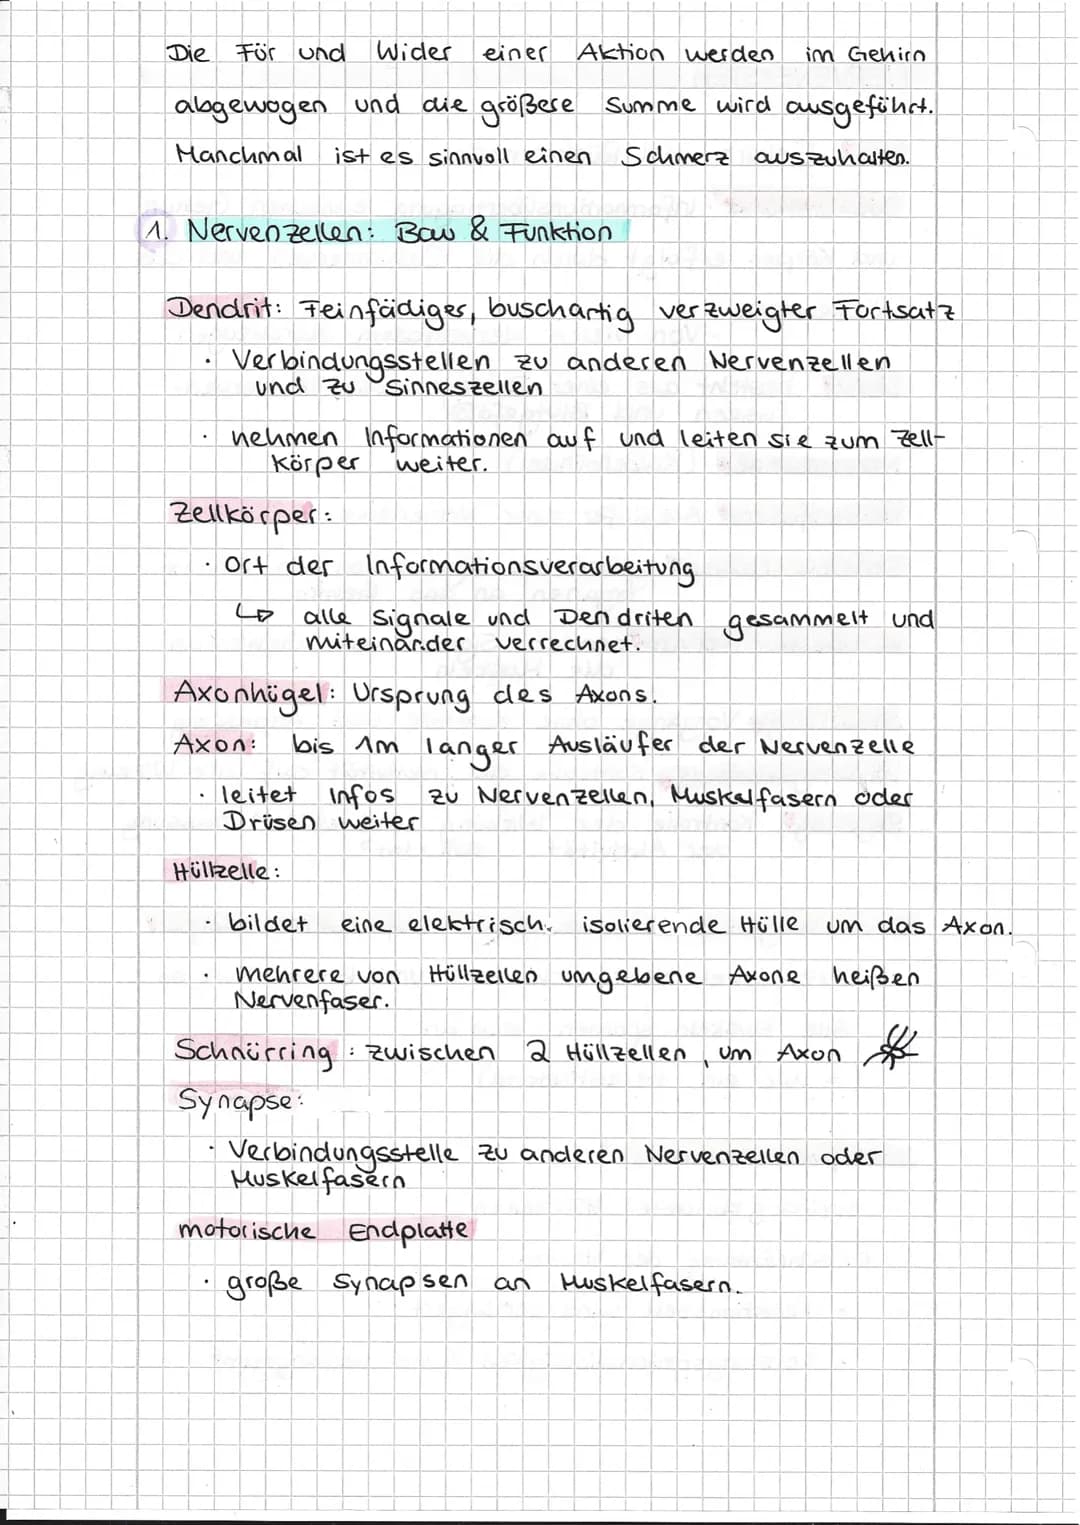 Die Für und Wider einer Aktion werden im Gehirn
abgewogen und die größere Summe wird ausgeführt.
Manchmal ist es sinnvoll einen Schmerz auszuhalten.
1. Nervenzellen: Bau & Funktion
Dendrit: Feinfädiger, buschartig verzweigter Fortsatz
· Verbindungsstellen zu anderen Nervenzellen
und zu Sinneszellen
· nehmen Informationen auf und leiten sie zum Zell-
körper weiter.
Zellkörper:
· Ort der Informationsverarbeitung
↳ alle Signale und Dendriten gesammelt und
miteinander verrechnet.
Axonhügel: Ursprung des Axons.
Axon: bis 1m langer Ausläufer der Nervenzelle
· leitet Infos zu Nervenzellen, Muskelfasern oder
Drüsen weiter
Hüllzelle:
· bildet eine elektrisch. isolierende Hülle um das Axon.
· mehrere von Hüllzellen umgebene Axone heißen
Nervenfaser.
Schnürring: zwischen 2 Hüllzellen, um Axon
Synapse:
· Verbindungsstelle zu anderen Nervenzellen oder
Muskelfasern
motorische Endplatte
· große Synapsen an Muskelfasern.